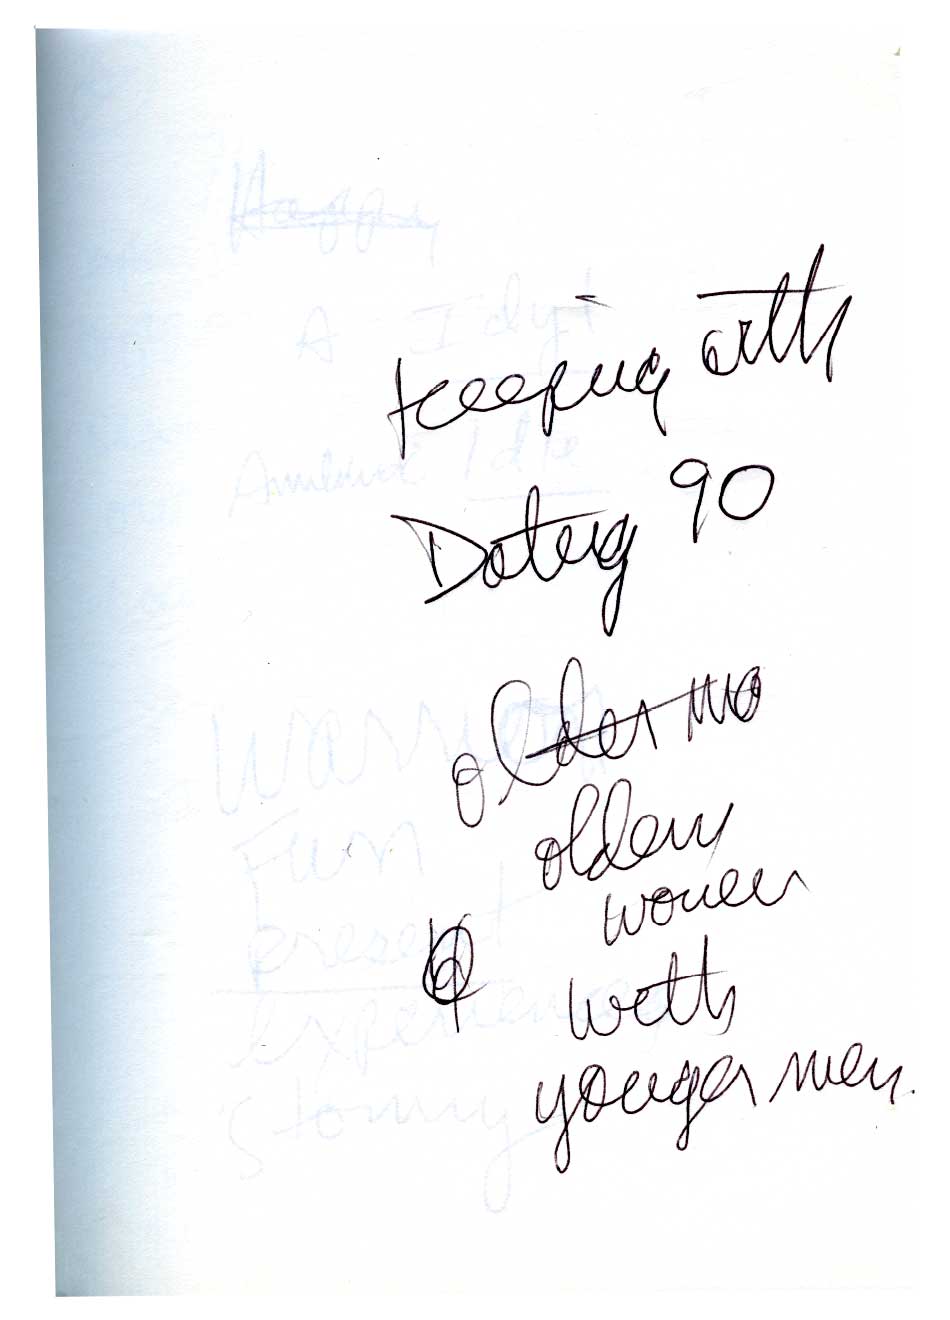 Happy
A Idyt
Keeping with
Idle
Dating 90
older mo
older
women
with
younger men.
Warrior
Fun
present
experience
Stormy